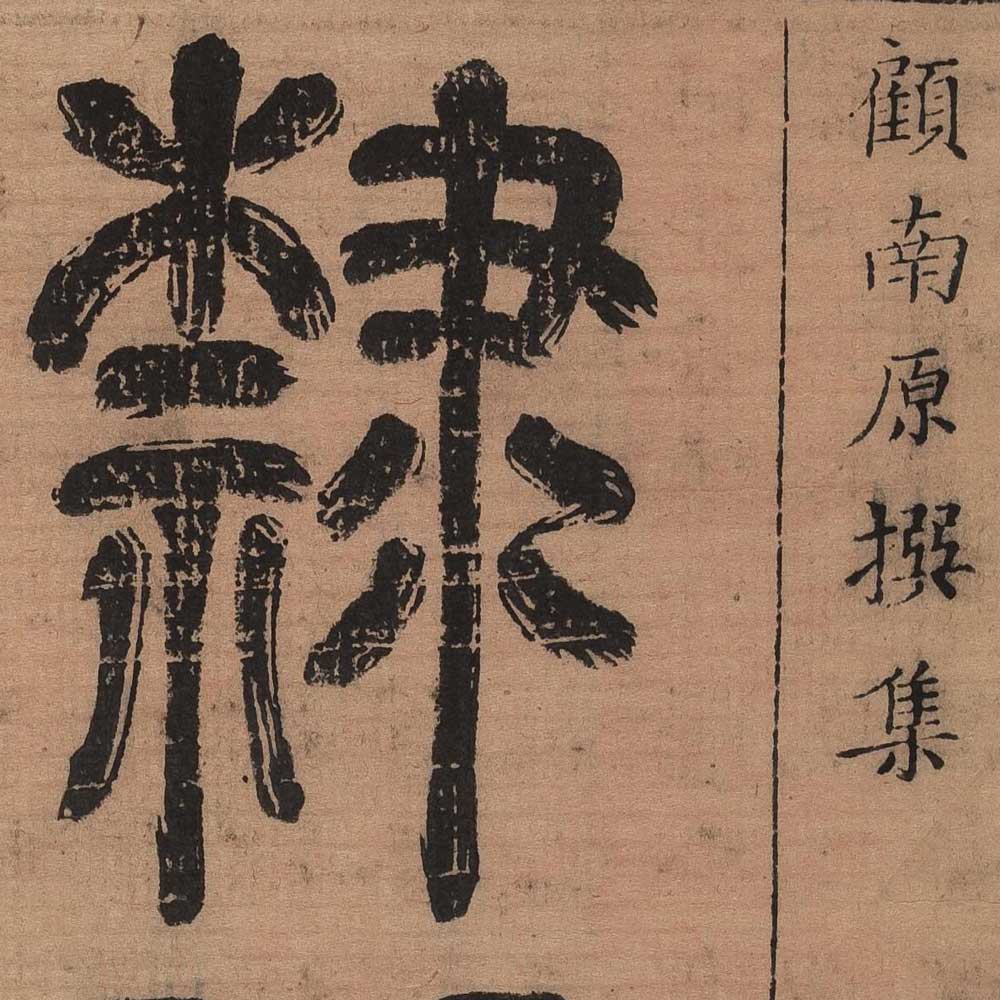 顧南原撰集
隸